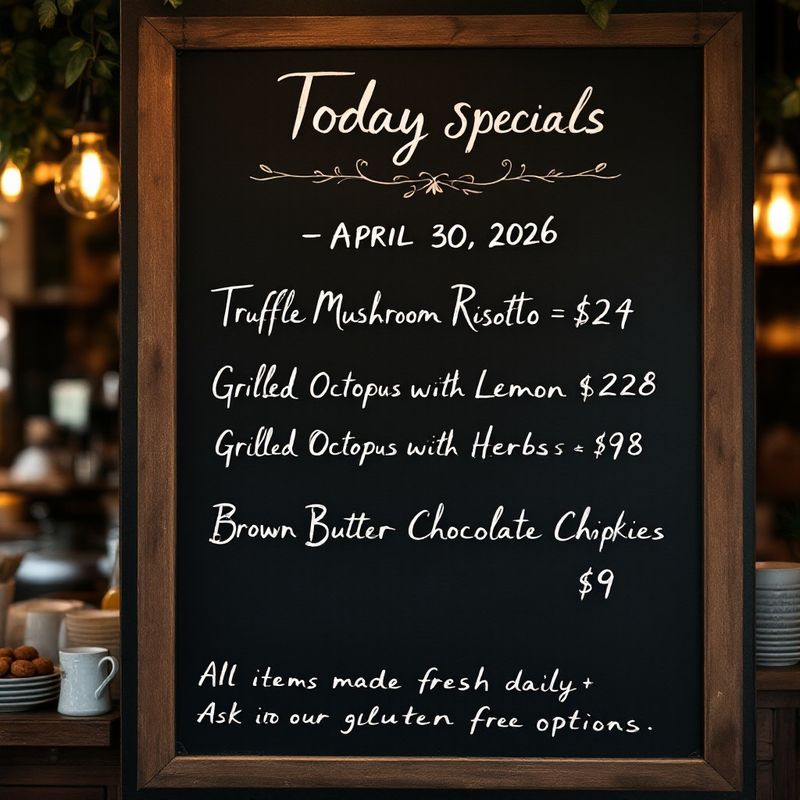 Today specials
– APRIL 30, 2026
Truffle Mushroom Risotto = $24
Grilled Octopus with Lemon $228
Grilled Octopus with Herbs s = $98
Brown Butter Chocolate Chipkies
$9
All items made fresh daily +
Ask iro our giluten free options.